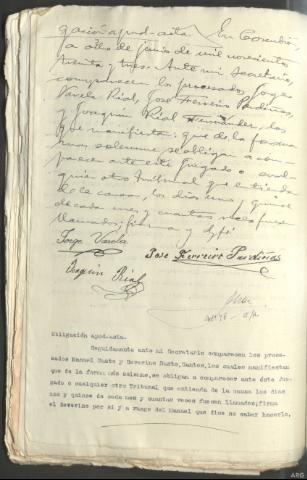 gación apud-acta = En Corcubión
a ocho de junio de mil novecientos
treinta y tres. Ante mi Secretario
comparecen los procesados Jorge
Varela Rial, José Ferreiro Pardiñas
y Joaquin Rial Fernández, los
que manifiestan: que de la forma
mas solemne se obligan a com-
parecer ante este Juzgado o cual-
quier otro Tribunal que entienda
de la causa, los dias uno y quince
de cada mes y cuantas veces fueren
llamados; firman y doy fé
Jorge Varela
José Ferreiro Pardiñas
Joaquin Rial
Obligación apud-acta.
Seguidamente ante mi Secretario comparecen los proce-
sados Manuel Busto y Severino Busto, Santos, los cuales manifiestan
que de la forma más solemne, se obligan a comparecer ante éste Juz-
gado o cualquier otro Tribunal que entienda de la causa los dias
uno y quince de cada mes y cuantas veces fueren llamados; firma
el Severino por si y a ruego del Manuel que dice no saber hacerlo,
ARG